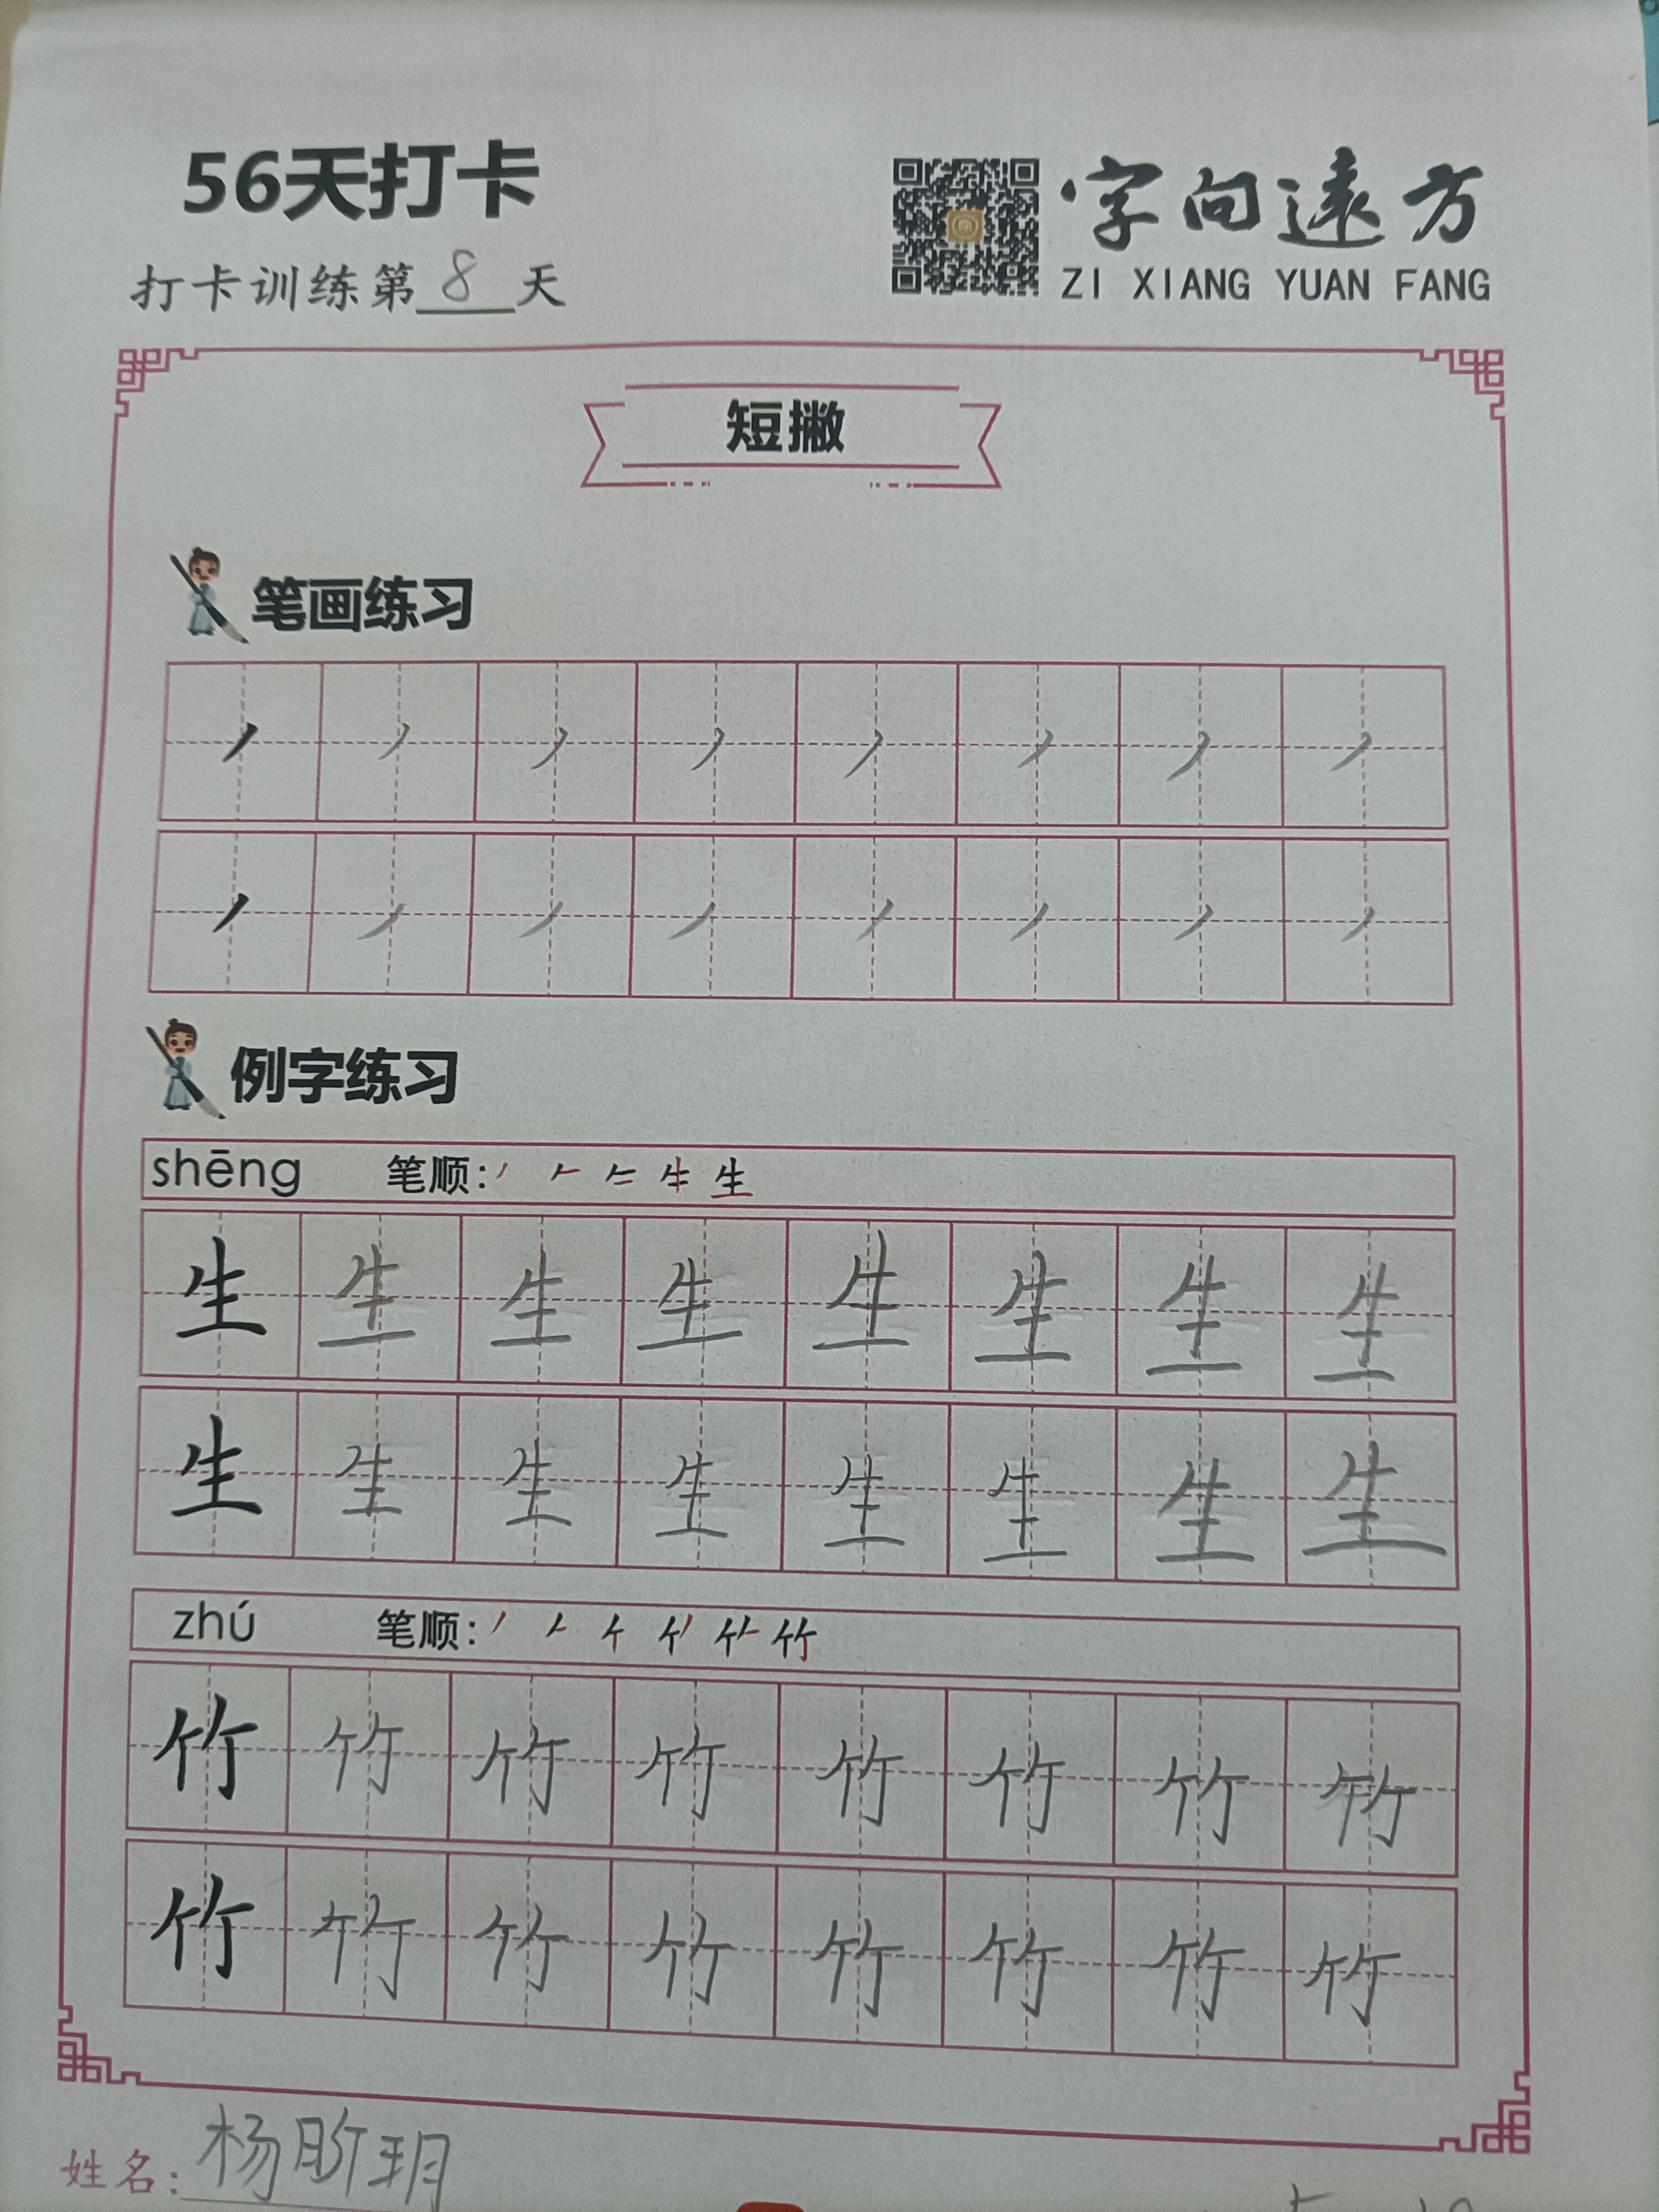 56天打卡
字向遠方
ZI XIANG YUAN FANG
打卡训练第8天
短撇
笔画练习
丿丿丿丿丿丿丿丿
丿丿丿丿丿丿丿丿
例字练习
shēng 笔顺: 生
生生生生生生生生
生生生生生生生生
zhú 笔顺: 竹
竹竹竹竹竹竹竹竹
竹竹竹竹竹竹竹竹
姓名: 杨昕玥